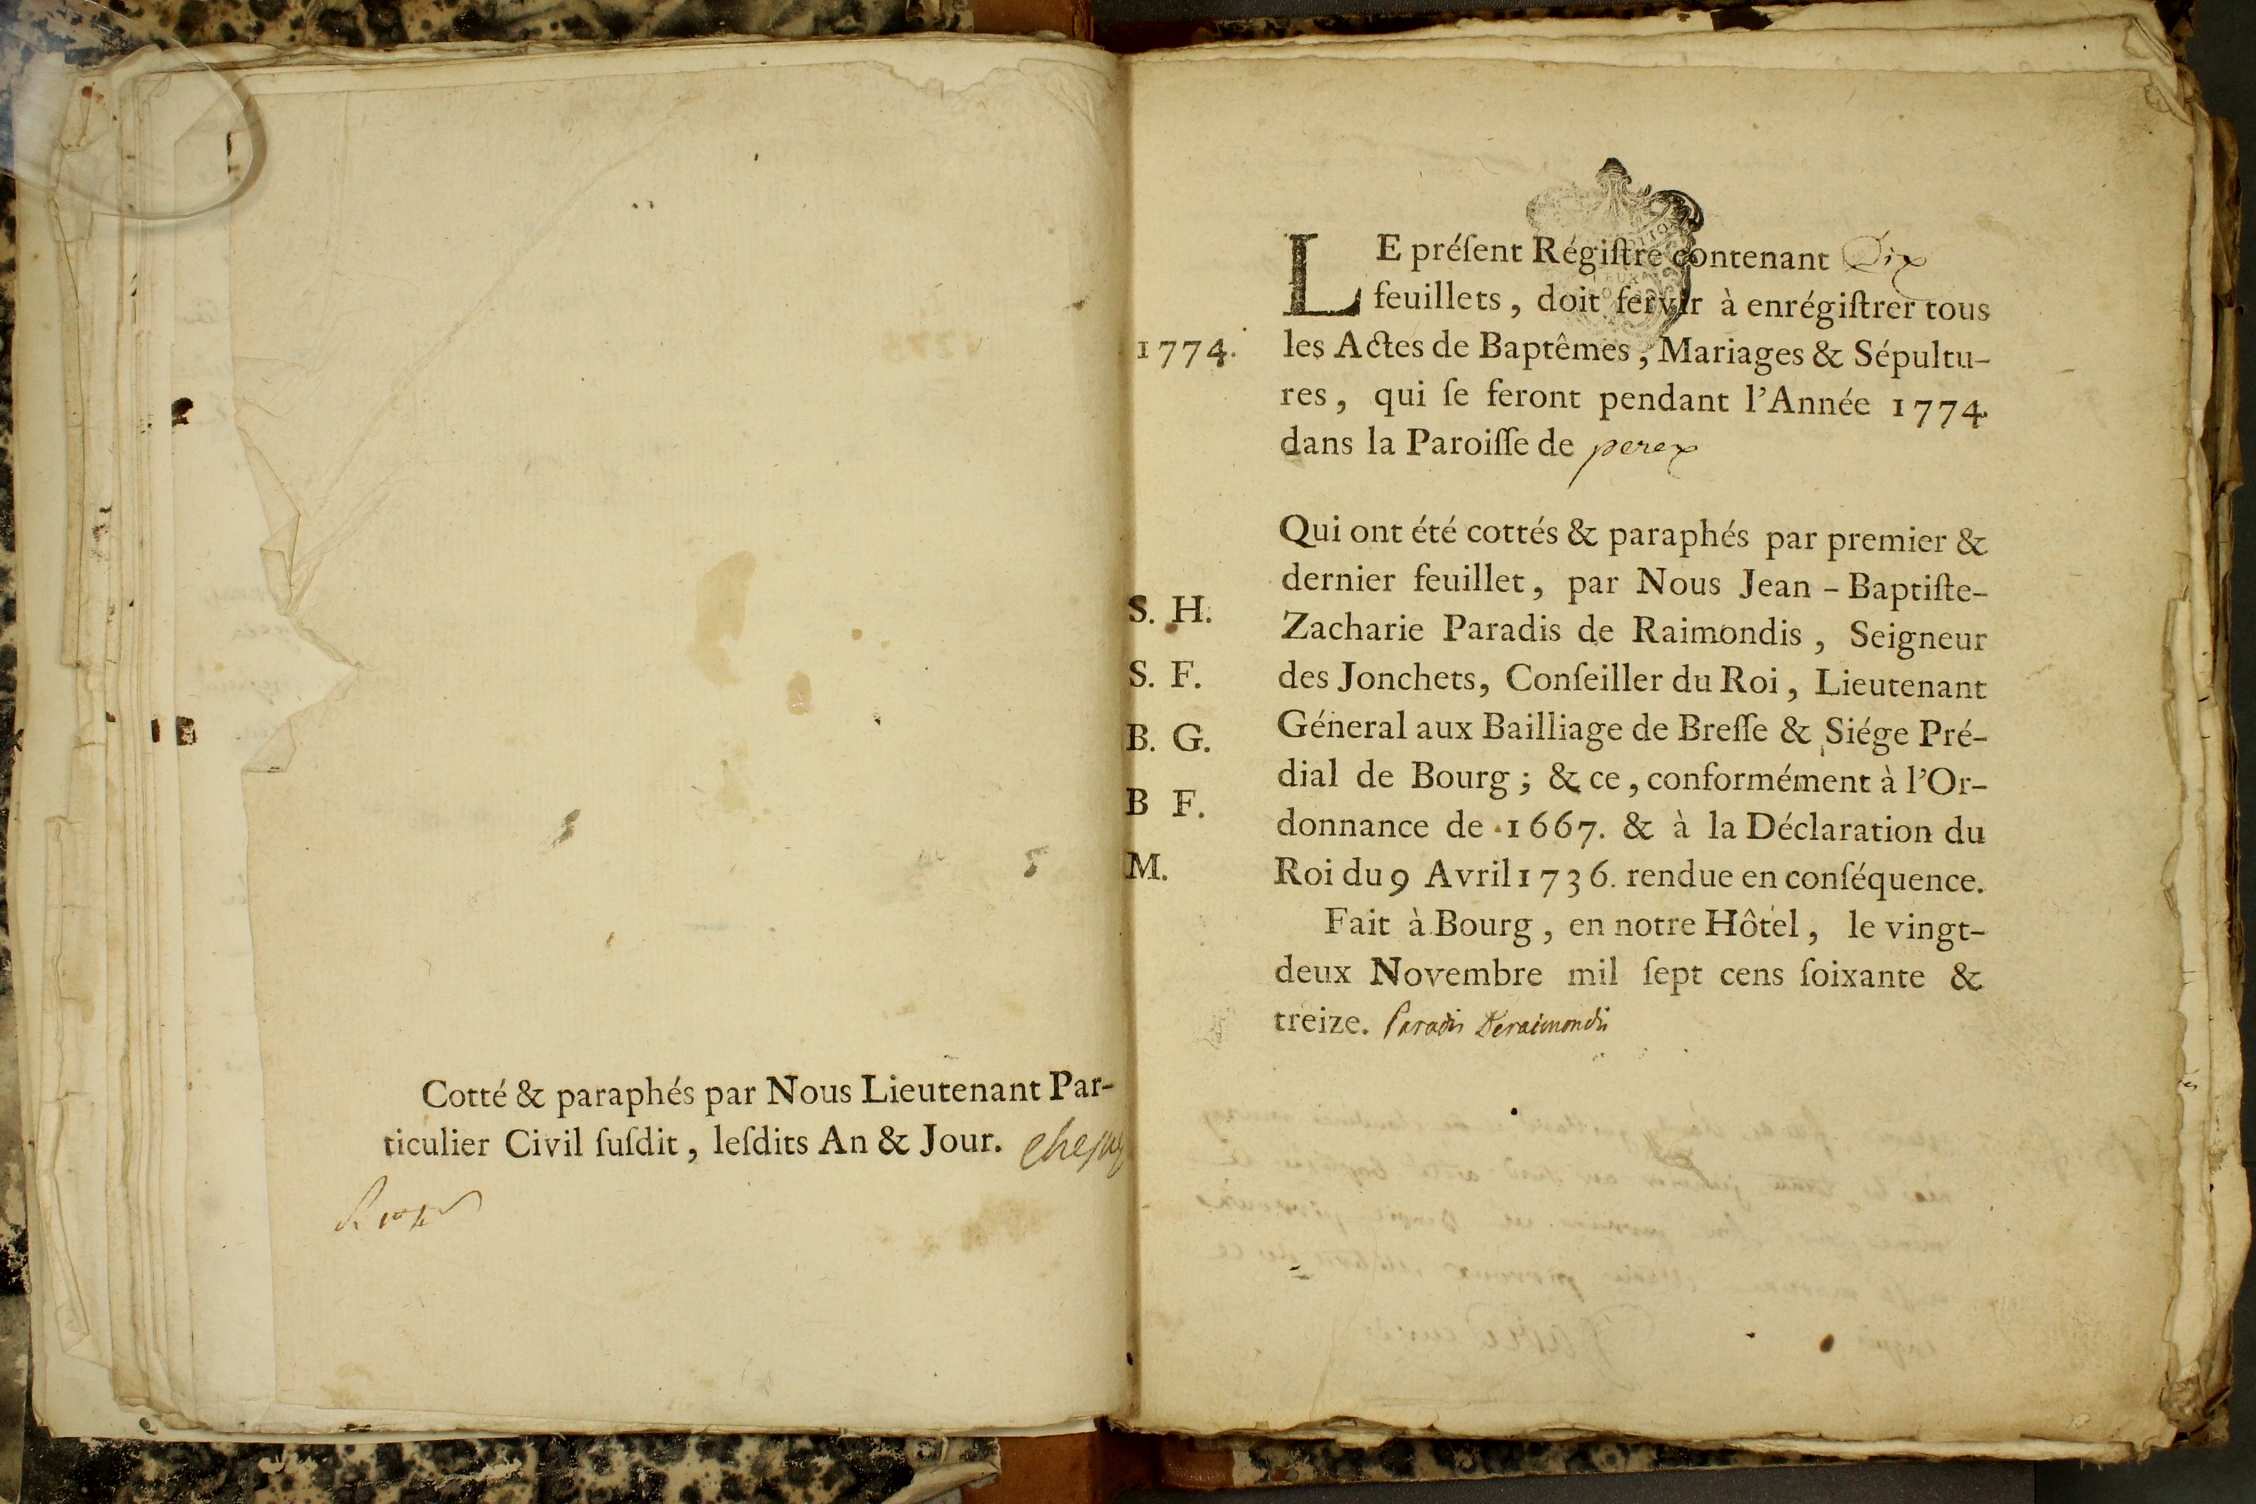 Cotté & paraphés par Nous Lieutenant Par-
ticulier Civil ſuſdit, leſdits An & Jour.
LE préſent Régiſtre contenant Dix
feuillets, doit ſervir à enrégiſtrer tous
1774. les Actes de Baptêmes, Mariages & Sépultu-
res, qui ſe feront pendant l'Année 1774.
dans la Paroiſſe de perex
Qui ont été cottés & paraphés par premier &
dernier feuillet, par Nous Jean-Baptiſte-
S. H. Zacharie Paradis de Raimondis, Seigneur
S. F. des Jonchets, Conſeiller du Roi, Lieutenant
B. G. Géneral aux Bailliage de Breſſe & Siége Pré-
B F. dial de Bourg; & ce, conformément à l'Or-
donnance de 1667. & à la Déclaration du
M. Roi du 9 Avril 1736. rendue en conſéquence.
Fait à Bourg, en notre Hôtel, le vingt-
deux Novembre mil ſept cens ſoixante &
treize. Paradis Deraimondis